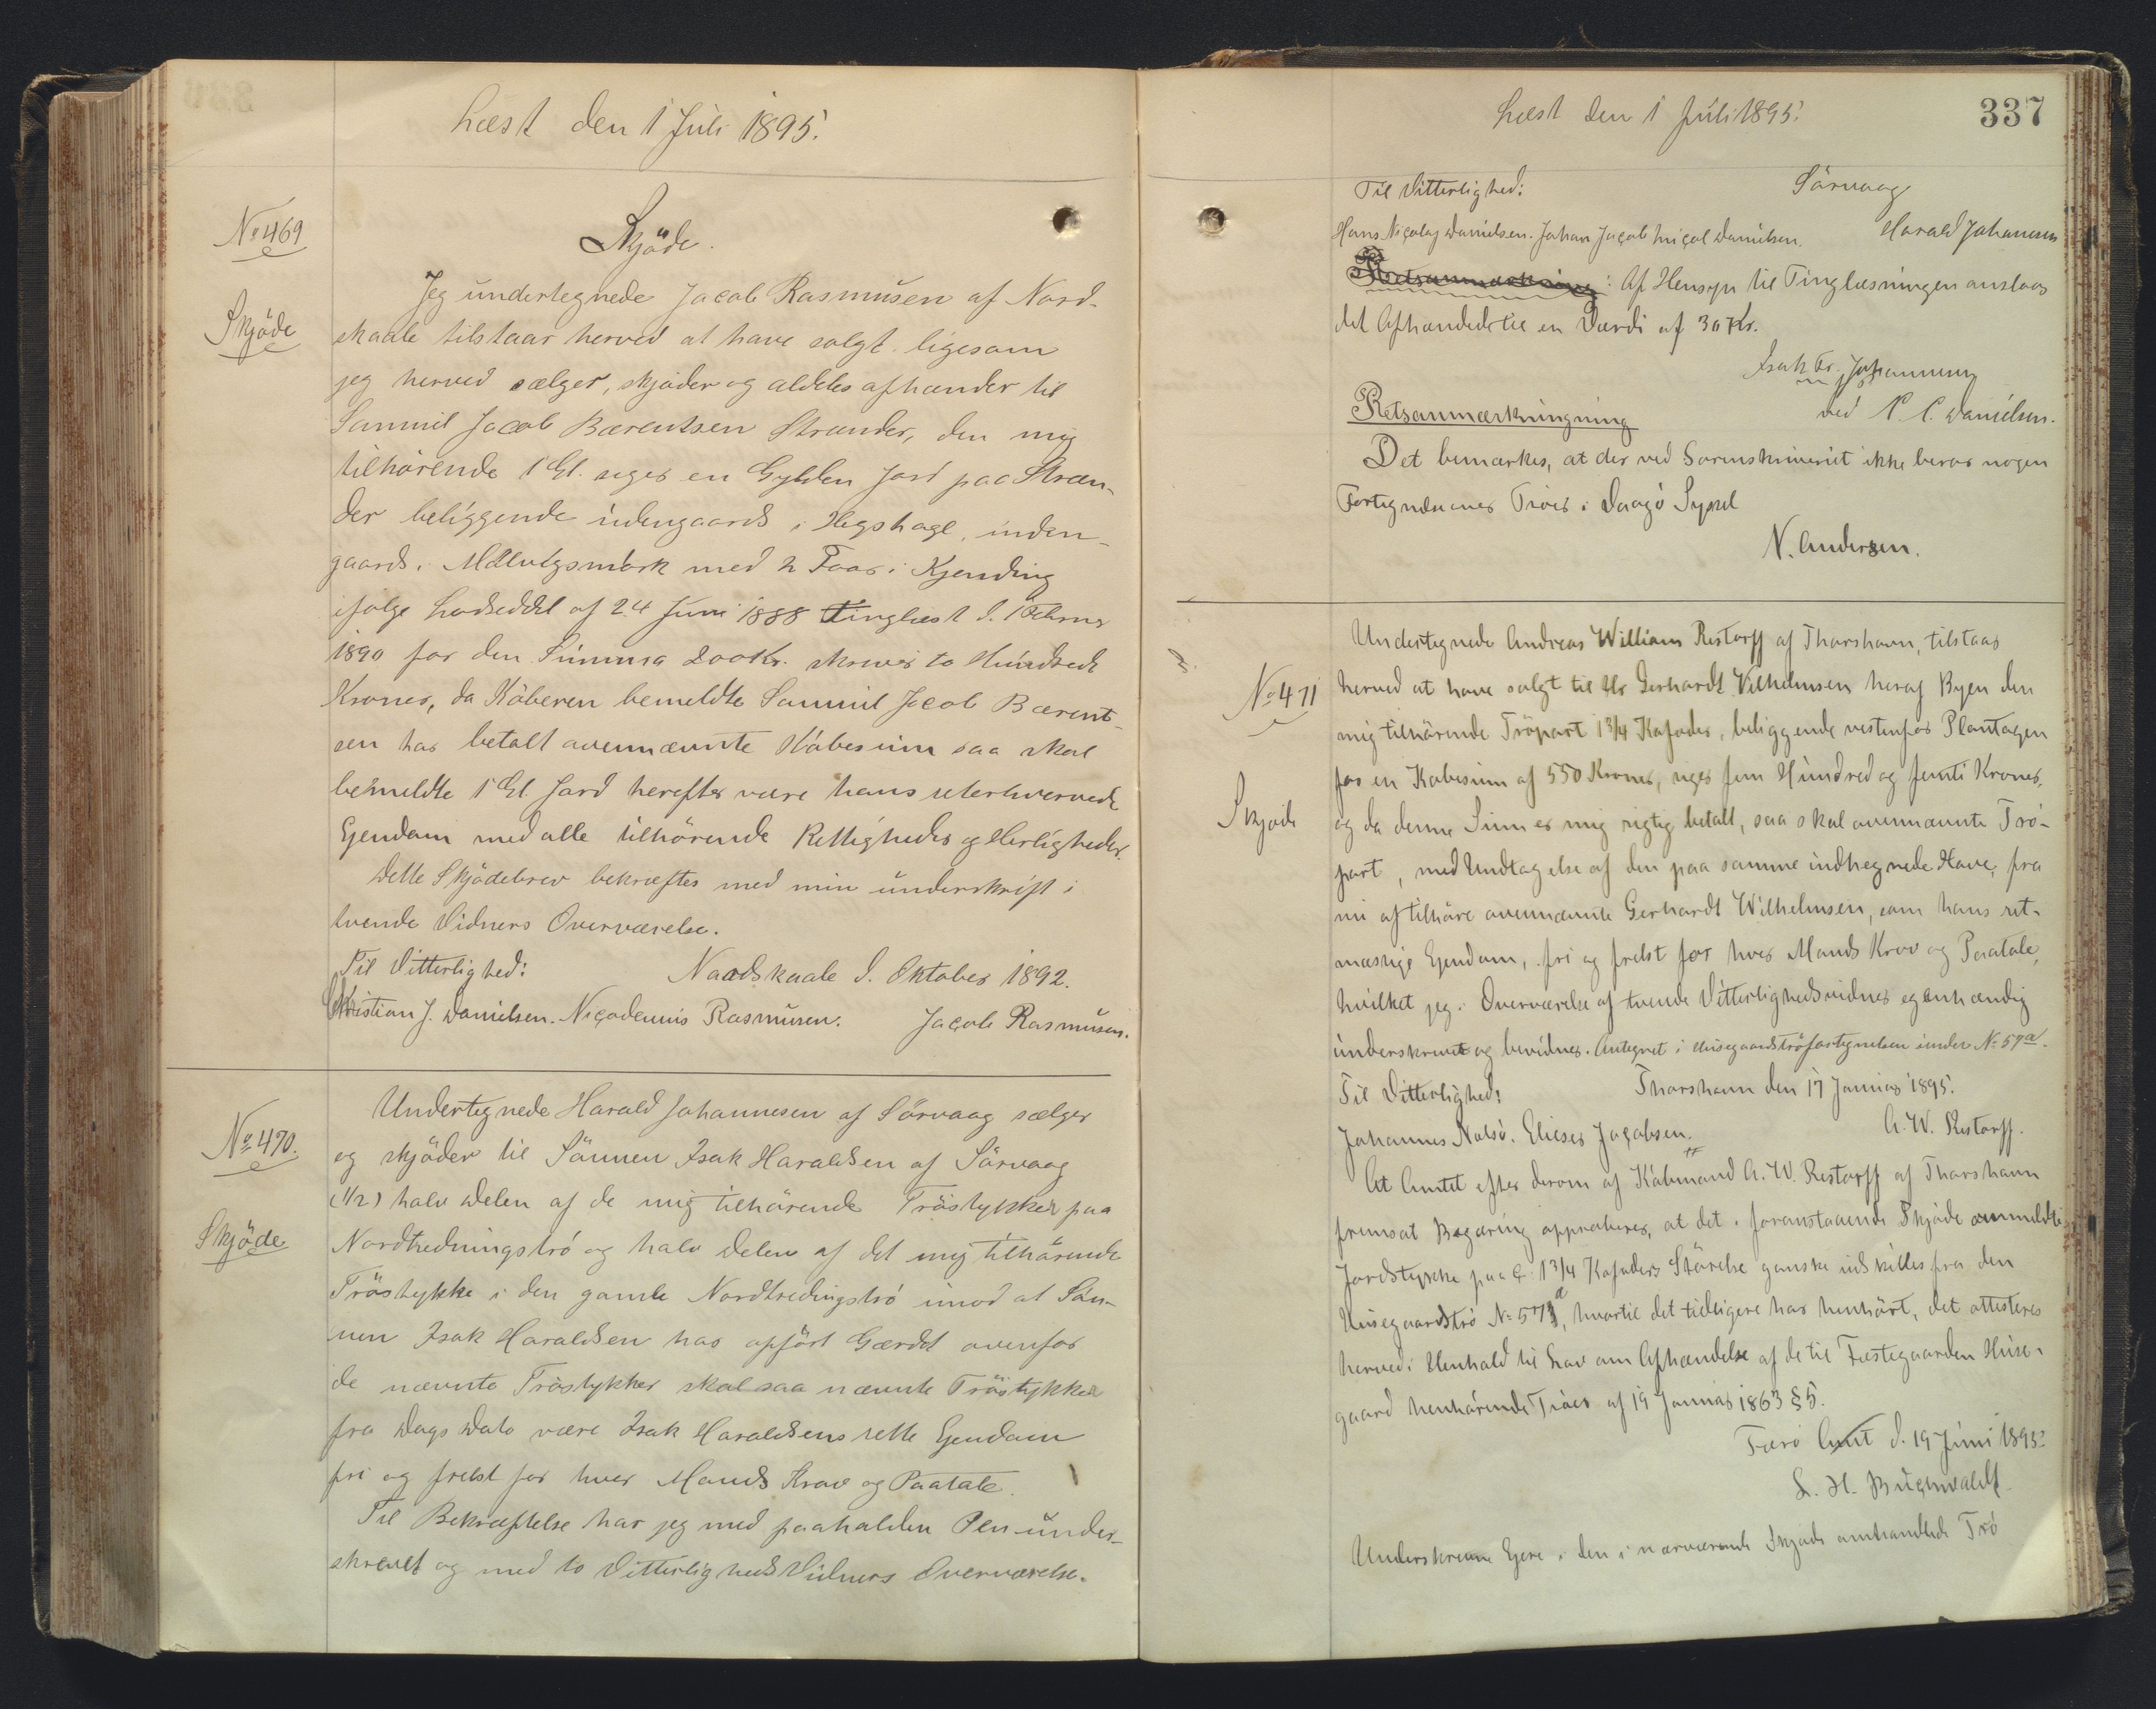 Læst den 1 Juli 1895.
No 469
Skjöde
Skjöde.
Jeg undertegnede Jacob Rasmusen af Nord-
skaale tilstaar herved at have solgt ligesom
jeg herved sælger, skjöder og aldeles afhænder til
Samuil Jacob Bærentsen Strænder, den mig
tilhörende 1 Gl. siger en Gylden Jord paa Stræn-
der beliggende udengaards i Hegshage, inden-
gaards i Mølletgsmørk med 2 Faar i Kjending
ifölge Lodseddel af 24 Juni 1888 tinglæst d. 1 Febrer
1890 for den Summa 200 Kr. skriver to Hundrede
Kroner, da Köberen bemeldte Samuil Jacob Bærent-
sen har betalt avennævnte Köbesum saa skal
bemeldte 1 Gl. Jord herefter være hans velerhvervede
Ejendom med alle tilhörende Rettigheder og Herligheder.
Dette Skjödebrev bekræftes med min underskrift i
tvende Vidners Overværelse.
Til Vitterlighed: Naadskaale d. Oktober 1892.
Christian J. Danielsen. Niçodemus Rasmusen. Jaçob Rasmusen.
No 470.
Skjöde
Undertegnede Harald Johannesen af Sörvaag sælger
og skjöder til Sönnen Isak Haraldsen af Sörvaag
(1/2) halv Delen af de mig tilhörende Tröstykker paa
Nordtredningströ og halv Delen af det mig tilhörende
Tröstykke i den gamle Nordtredingströ imod at Sön-
nen Isak Haraldsen har opfört Gærdet ovenfor
de nævnte Tröstykker skal saa nævnte Tröstykker
fra Dags Dato være Isak Haraldsens rette Ejendom
fri og frelst for hver Mands Krav og Paatale.
Til Bekræftelse har jeg med paaholden Pen under-
skrevet og med to Vitterligheds Vidners Overværelse.
Læst den 1 Juli 1895.
337
Til Vitterlighed: Sörvaag
Hans Niçolaj Danielsen. Johan Jaçob Miçal Danielsen. Harald Johannesen
Retsanmærkning: Af Hensyn til Tinglæsningen anslaas
det Afhændede til en Værdi af 30 Kr.
Isak Fr. Johannesen
Retsanmærkningning ved P. C. Danielsen.
Det bemærkes, at der ved Sorenskriveriet ikke beror nogen
Fortegnelse over Tröer i Vaagö Syssel
N. Andersen.
No 471
Skjöde
Undertegnede Andreas William Restorff af Thorshavn, tilstaar
herved at have solgt til Hr Gerhardt Vilhelmsen heraf Byen den
mig tilhörende Tröpart 1 3/4 Kofoder, beliggende vestenfor Plantagen
for en Köbesum af 550 Kroner, siger fem Hundred og femti Kroner,
og da denne Sum er mig rigtig betalt, saa skal avennævnte Trö-
part, med Undtagelse af den paa samme indhegnede Have, fra
nu af tilhöre avennævnte Gerhardt Wilhelmsen, som hans ret-
mæssige Ejendom, fri og frelst for hver Mands Krav og Paatale,
hvilket jeg i Overværelse af tvende Vitterlighedsvidner egenhændig
underskriver og bevidner. Antegnet i Husegaardströfortegnelsen under No 57a.
Til Vitterlighed: Thorshavn den 17 Januar 1895.
Johannes Nolsö. Elieser Jaçobsen. A. W. Restorff.
At Amtet efter derom af Köbmand A. W. Restorff af Thorshavn
fremsat Begæring approberer, at det i foranstaaende Skjöde ommeldte
Jordstykke paa C 1 3/4 Kofoders Störelse ganske udskilles fra den
Husegaardströ No 57a, hvortil det tidligere har henhört, det attesteres
herved i Henhold til Lov om Afhændelse af de til Fæstegaarden Huse-
gaard henhörende Tröer af 19 Januar 1863 § 5.
Færö Amt d. 19 Juni 1895.
L. H. Buchwaldt
Underskrevne Ejere i den i nærværende Skjöde omhandlede Trö